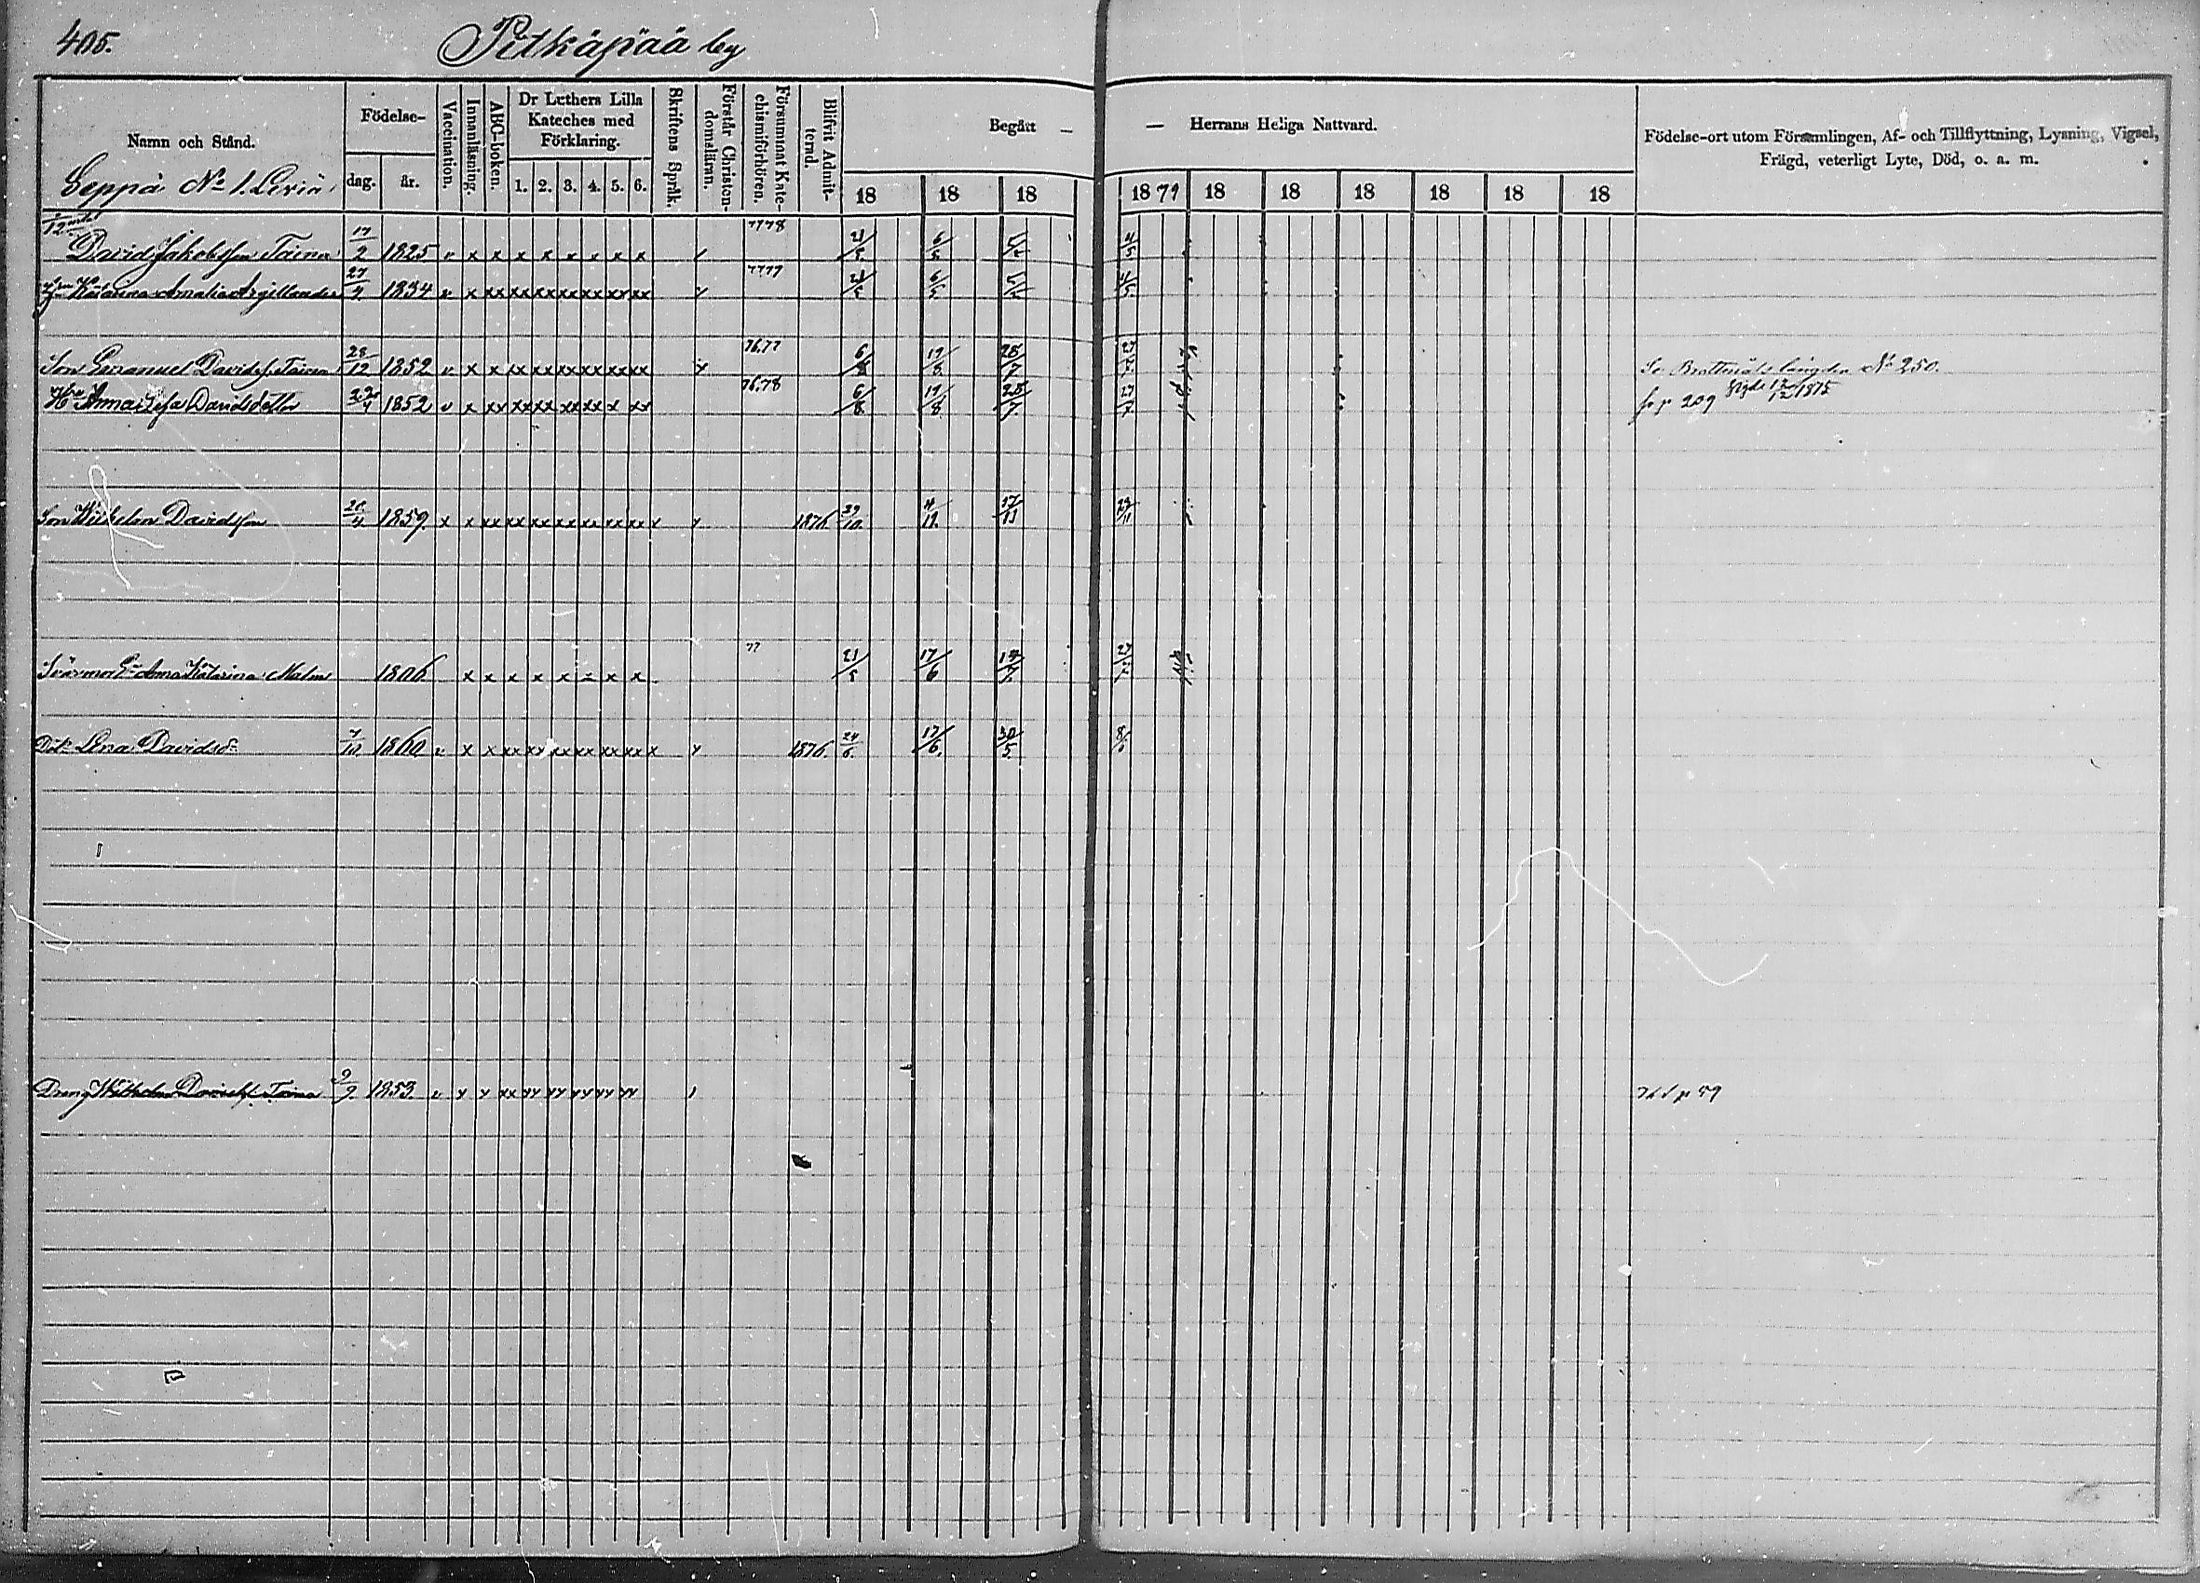 405.
Pitkäpää by
Namn och Stånd.
Födelse-
dag.
år.
Vaccination.
Innanläsning.
ABC-boken.
Dr Luthers Lilla
Kateches med
Förklaring.
1. 2. 3. 4. 5. 6.
Skriftens Språk.
Förstår Christen-
domsläran.
Försummat Kate-
chismiförhören.
Blifvit Admit-
terad.
Begått —
— Herrans Heliga Nattvard.
Födelse-ort utom Församlingen, Af- och Tillflyttning, Lysning, Vigsel,
Frägd, veterligt Lyte, Död, o. a. m.
18 18 18 18 79 18 18 18 18 18 18
Seppä No 1.
David Jakobsson Taina 17/2 1825 v x x x x x x x x 77 78 21/5 6/5 4/5
Hu Katarina Amalia Argillander 1834 v x xx xx xx xx xx xx xx 7777 21/5 6/5 4/5
Son Emanuel Davidss. Taina 28/12 1852 v x x xx xx xx xx xx xx 76.77 19/8 28/7 27/7 No 250.
Hu Anna Davidsdotter 22/4 1852 v x xx xx xx xx xx x xx 76.78 6/8 19/8 28/7 27/7 fr p 209 Vigde 12/12 1875
Son Wilhelm Davidsson 1859 x x xx xx xx xx xx xx xx x 1876 29/10 4/11
Svärmor Anna Katarina Malm 1806 x x x x x x x 77 21/5 17/6
Dot. Lena Davidsdr 7/10 1860 v x x xx xx xx xx xx xx x 1876. 24/6. 17/6. 30/5.
Dräng Wilhelm Davidss. Taina 9/9. 1853 v
p 59